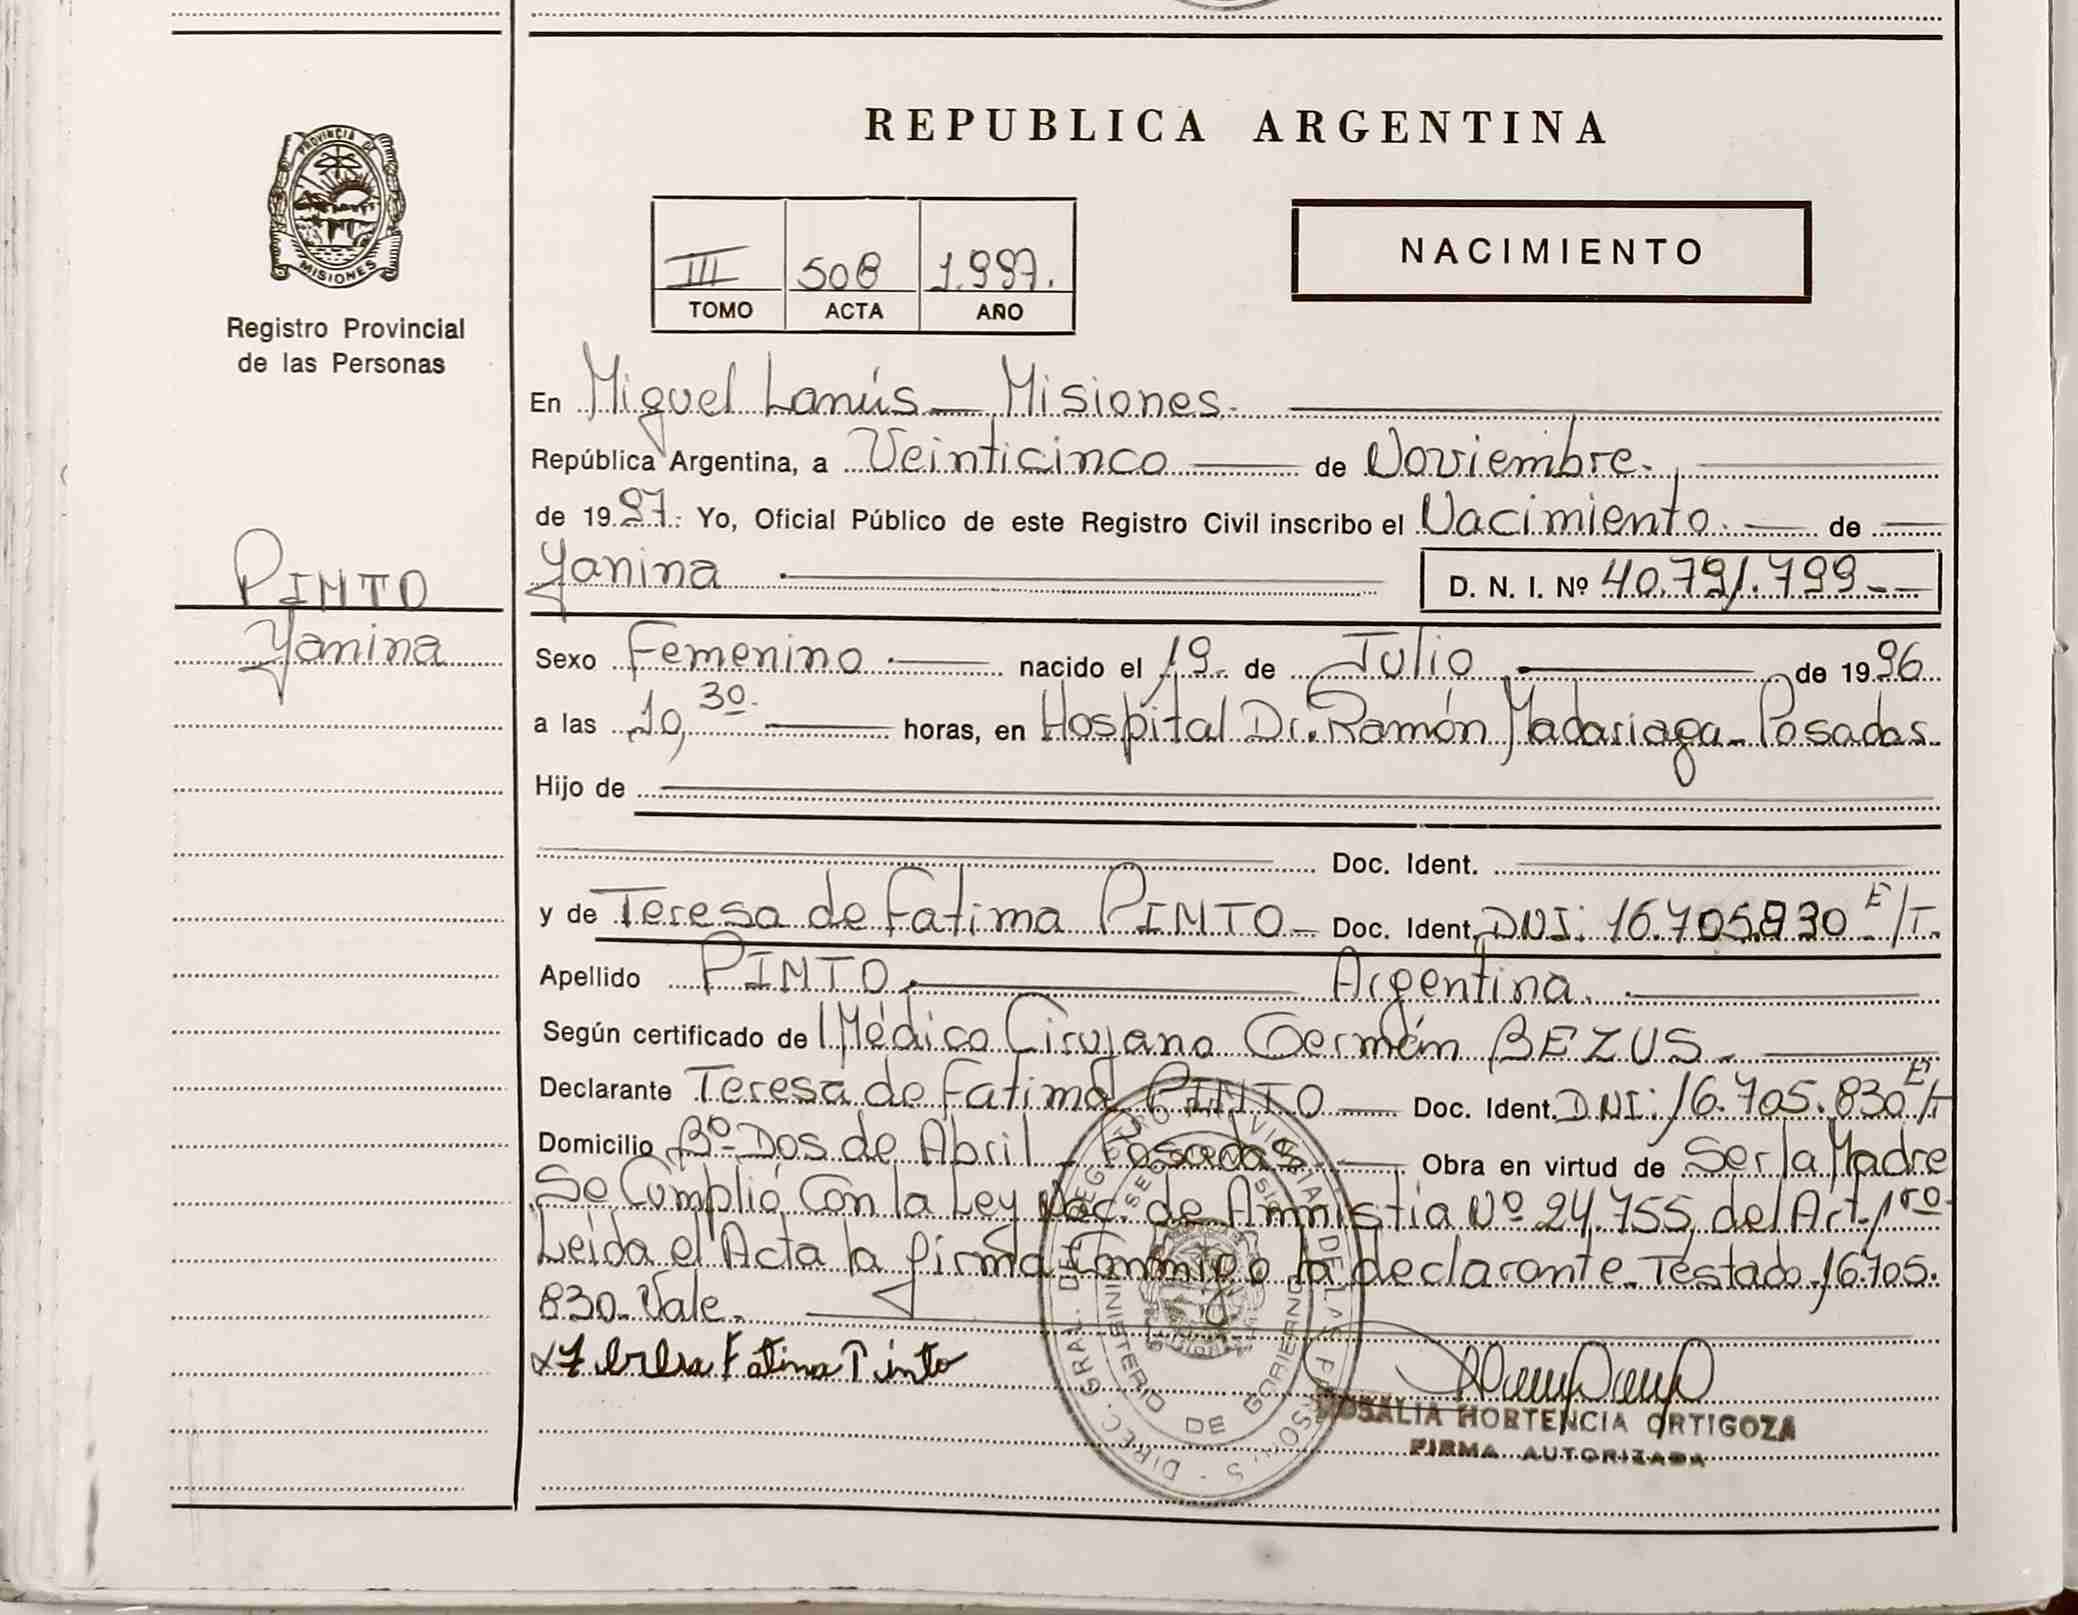 REPUBLICA ARGENTINA
PROVINCIA DE
MISIONES
Registro Provincial
de las Personas
III 508 1.997.
TOMO ACTA AÑO
NACIMIENTO
En Miguel Lanús - Misiones.
República Argentina, a Veinticinco de Noviembre.
de 1997. Yo, Oficial Público de este Registro Civil inscribo el Nacimiento. de
PINTO
Yanina
Yanina D. N. I. Nº 40.791.799--
Sexo Femenino. nacido el 19. de Julio de 1996
a las 10,30. horas, en Hospital Dr. Ramón Madariaga- Posadas.
Hijo de
Doc. Ident.
y de Teresa de Fatima PINTO - Doc. Ident. DNI: 16.705.830 E/T.
Apellido PINTO. Argentina.
Según certificado de Médico Cirujano Germán BEZUS.
Declarante Teresa de Fatima PINTO - Doc. Ident. DNI: 16.705.830 E/T
Domicilio Bº Dos de Abril - Posadas - Obra en virtud de Ser la Madre
Se Cumplió Con la Ley Nac. de Amnistia Nº 24.755, del Art. 1ro.
Leida el Acta la firma Conmigo la declarante. Testado 16.705.
830. Vale.
Teresa Fatima Pinto
ROSALIA HORTENCIA ORTIGOZA
FIRMA AUTORIZADA
DIREC. GRAL. DE REGISTRO PROVINCIAL DE LAS PERSONAS
MINISTERIO DE GOBIERNO